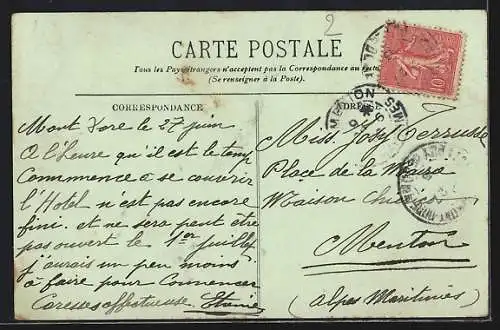 2
CARTE POSTALE
Tous les Pays étrangers n'acceptent pas la Correspondance au recto
(Se renseigner à la Poste).
CORRESPONDANCE
ADRESSE
Mont Dore le 27 juin
A l'heure qu'il est le temp
Commence a se couvrir
l'Hotel n'est pas encore
fini. et ne sera peut être
pas ouvert le 1er juillet
j'aurais un peu moins
à faire pour Commencer
Caresses affectueuse.
Miss. Josy
Place de la
Maison
Menton
(Alpes Maritimes)
10
MENTON